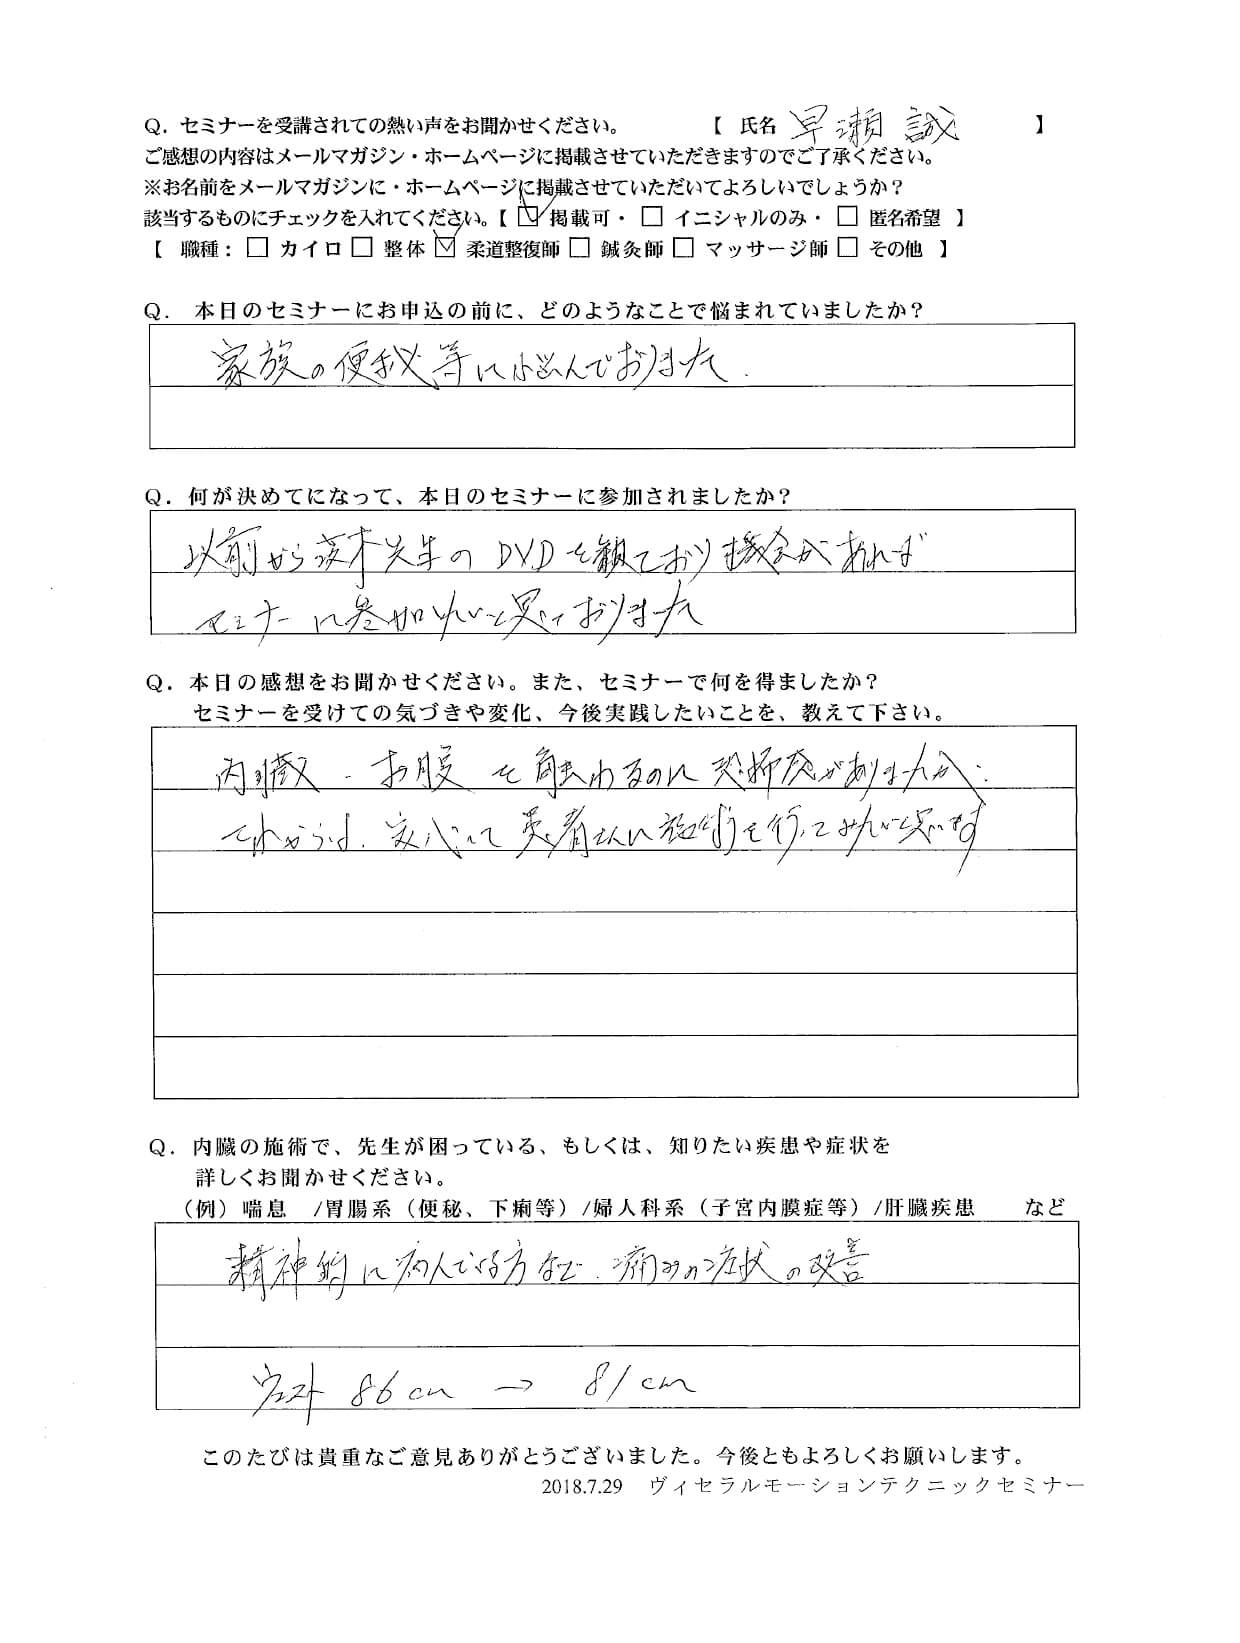 Q. セミナーを受講されての熱い声をお聞かせください。 【 氏名 早瀬 誠 】
ご感想の内容はメールマガジン・ホームページに掲載させていただきますのでご了承ください。
※お名前をメールマガジンに・ホームページに掲載させていただいてよろしいでしょうか？
該当するものにチェックを入れてください。【 ☑ 掲載可・ □ イニシャルのみ・ □ 匿名希望 】
【 職種： □ カイロ □ 整体 ☑ 柔道整復師 □ 鍼灸師 □ マッサージ師 □ その他 】
Q. 本日のセミナーにお申込の前に、どのようなことで悩まれていましたか？
家族の便秘等に悩んでおりました.
Q. 何が決めてになって、本日のセミナーに参加されましたか？
以前から茨木先生のDVDを観ており機会があれば
セミナーに参加したいと思っておりました
Q. 本日の感想をお聞かせください。また、セミナーで何を得ましたか？
セミナーを受けての気づきや変化、今後実践したいことを、教えて下さい。
内臓、お腹を触わるのに恐怖感がありましたが、
これからは、安心して患者さんに施術を行ってみたいと思います
Q. 内臓の施術で、先生が困っている、もしくは、知りたい疾患や症状を
詳しくお聞かせください。
（例）喘息 /胃腸系（便秘、下痢等）/婦人科系（子宮内膜症等）/肝臓疾患 など
精神的に病んでいる方など、痛みの症状の改善
ウエスト 86cm → 81cm
このたびは貴重なご意見ありがとうございました。今後ともよろしくお願いします。
2018.7.29 ヴィセラルモーションテクニックセミナー